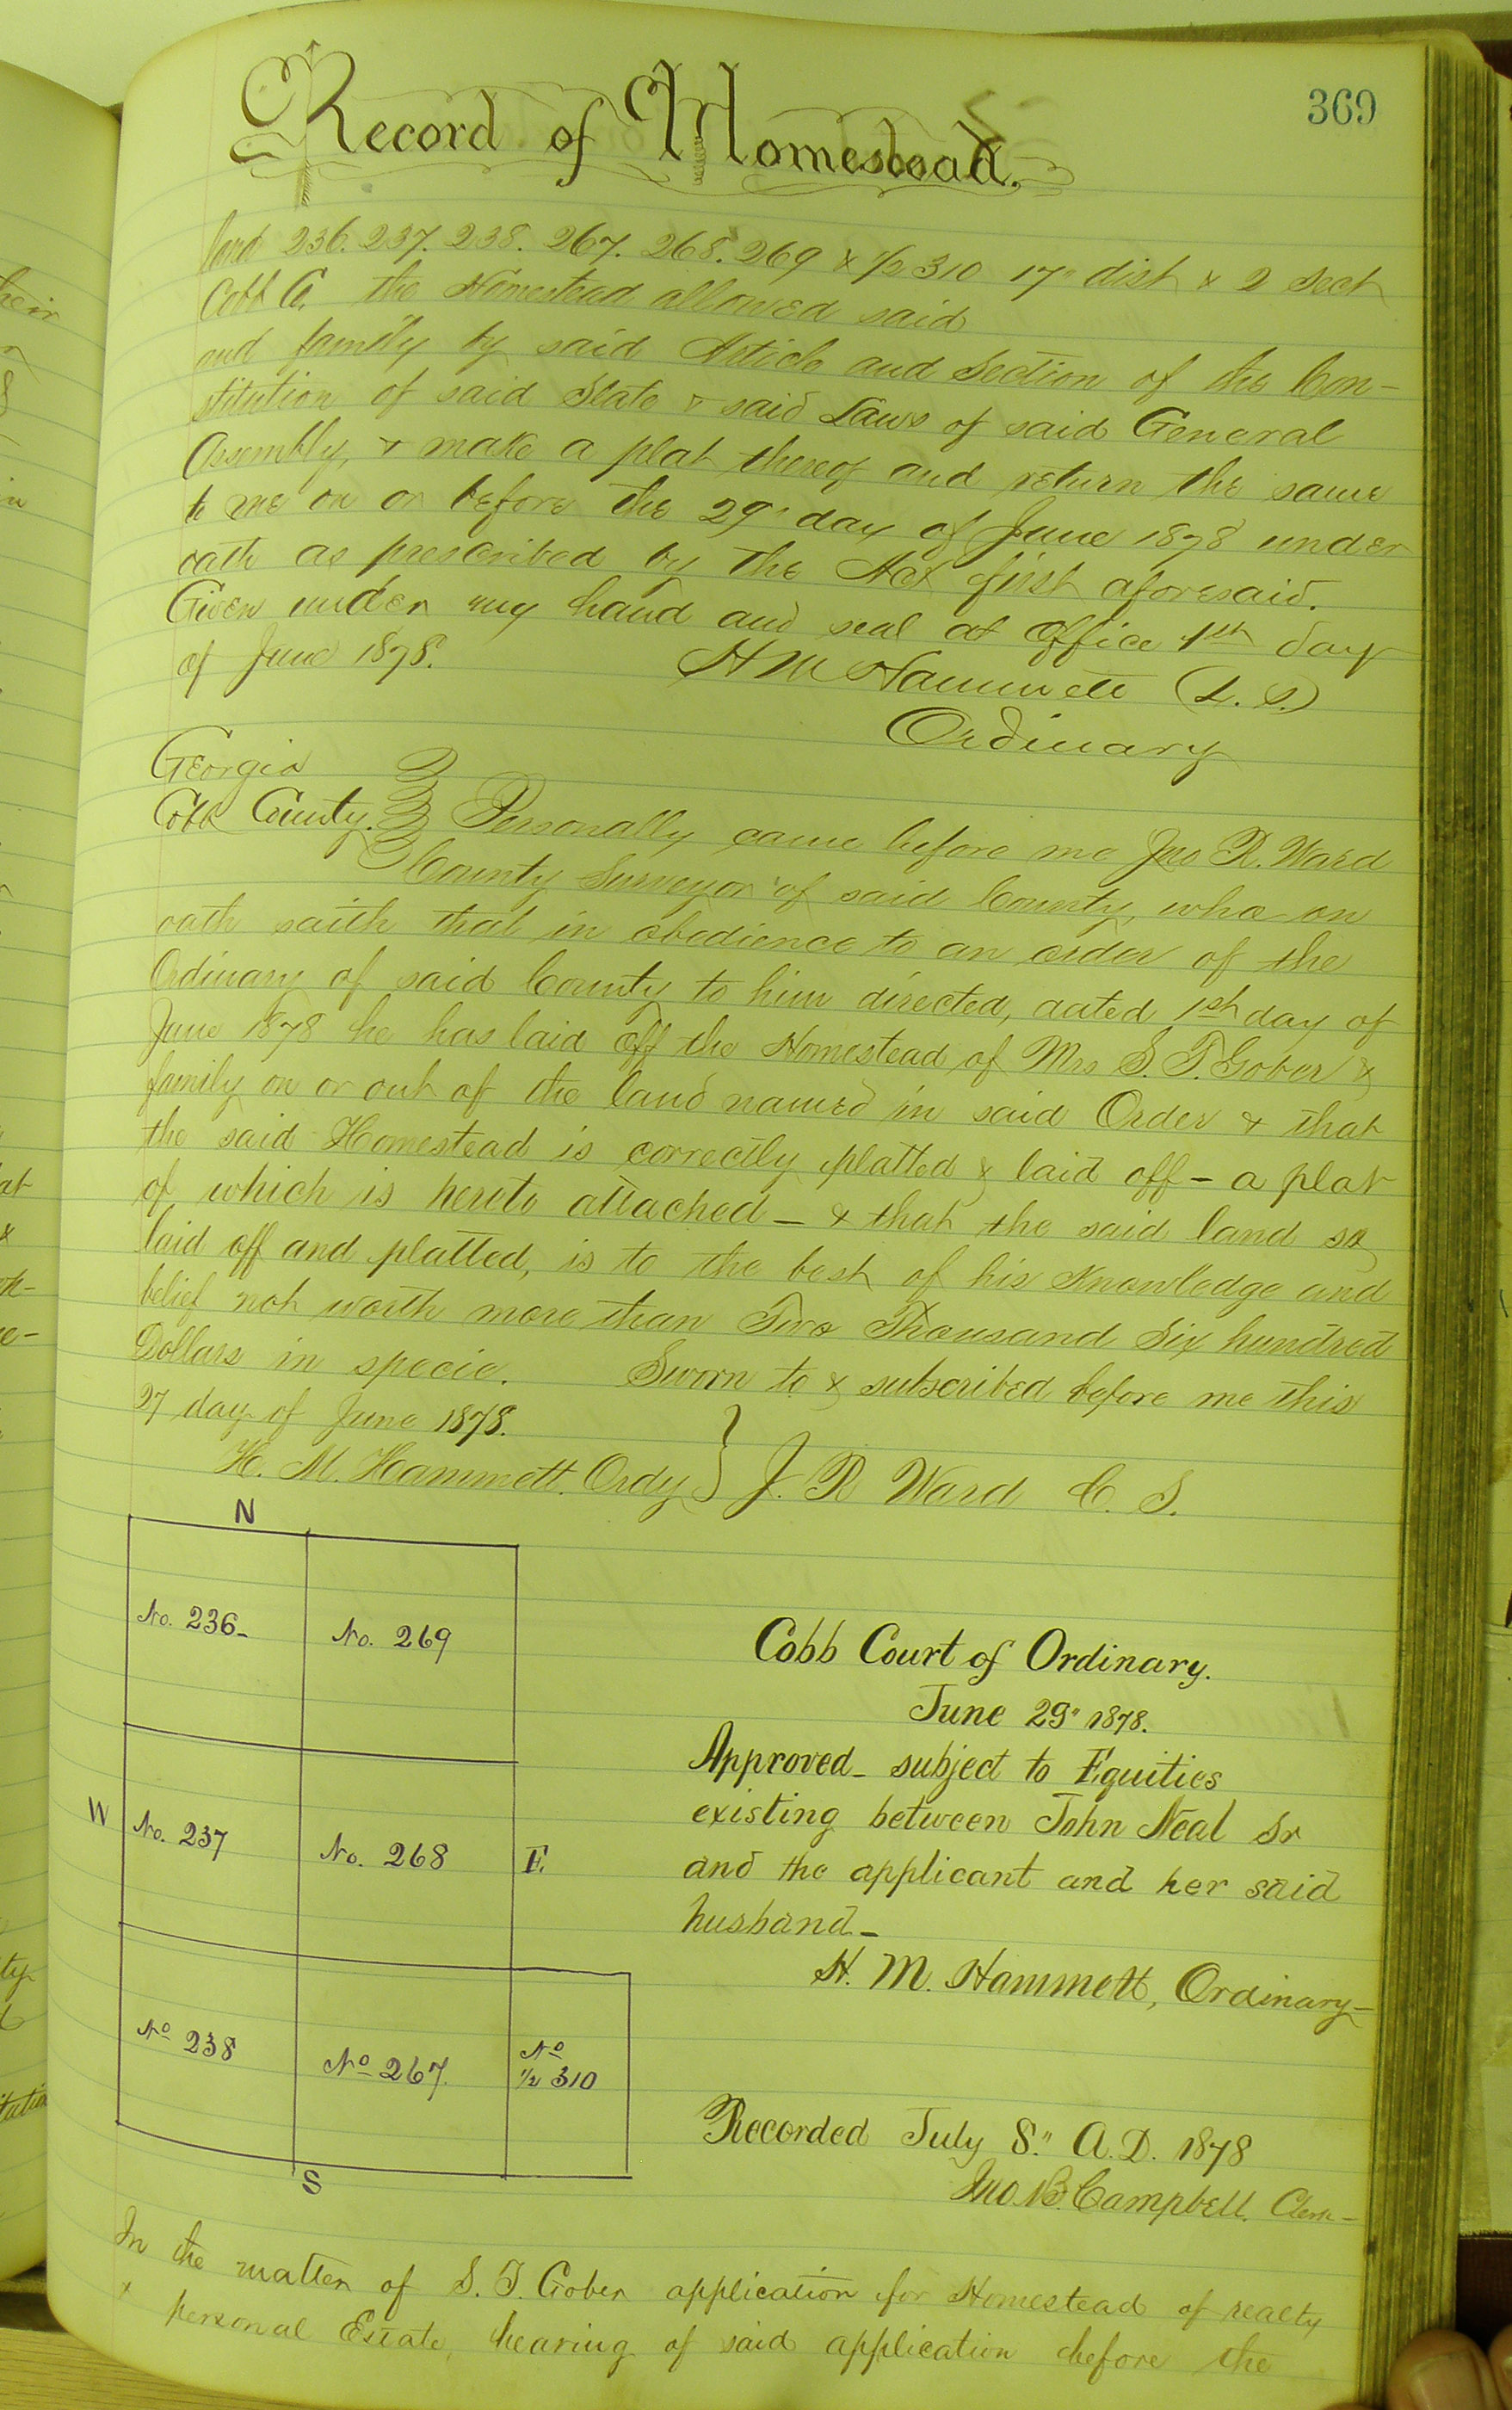 369
Record of Homestead.
land 236. 237. 238. 267. 268. 269 & 1/2 310 17" dist & 2 Sect
Cobb Co. the Homestead allowed said
and family by said Article and Section of the Con-
stitution of said State & said Laws of said General
Assembly, & make a plat thereof and return the same
to me on or before the 29' day of June 1878 under
oath as prescribed by the Act first aforesaid.
Given under my hand and seal at office 1st day
of June 1878. H M Hammett (L. S.)
Ordinary
Georgia
Cobb County. Personally came before me Jno R. Ward
County Surveyor of said County, who on
oath saith that in obedience to an order of the
Ordinary of said County to him directed, dated 1st day of
June 1878 he has laid off the Homestead of Mrs S. T. Gober &
family on or out of the land named in said Order & that
the said Homestead is correctly platted & laid off - a plat
of which is hereto attached - & that the said land so
laid off and platted, is to the best of his knowledge and
belief not worth more than Two Thousand Six hundred
Dollars in specie. Sworn to & subscribed before me this
27 day of June 1878.
H. M. Hammett. Ordy } J. R Ward C. S.
N
No. 236-
No. 269
W
No. 237
No. 268
E.
No 238
No 267.
No
1/2 310
S
Cobb Court of Ordinary.
June 29" 1878.
Approved - subject to Equities
existing between John Neal Sr
and the applicant and her said
husband -
H. M. Hammett, Ordinary -
Recorded July 8." A.D. 1878
Jno. B. Campbell. Clerk -
In the matter of S. T. Gober application for Homestead of realty
& personal Estate, hearing of said application before the